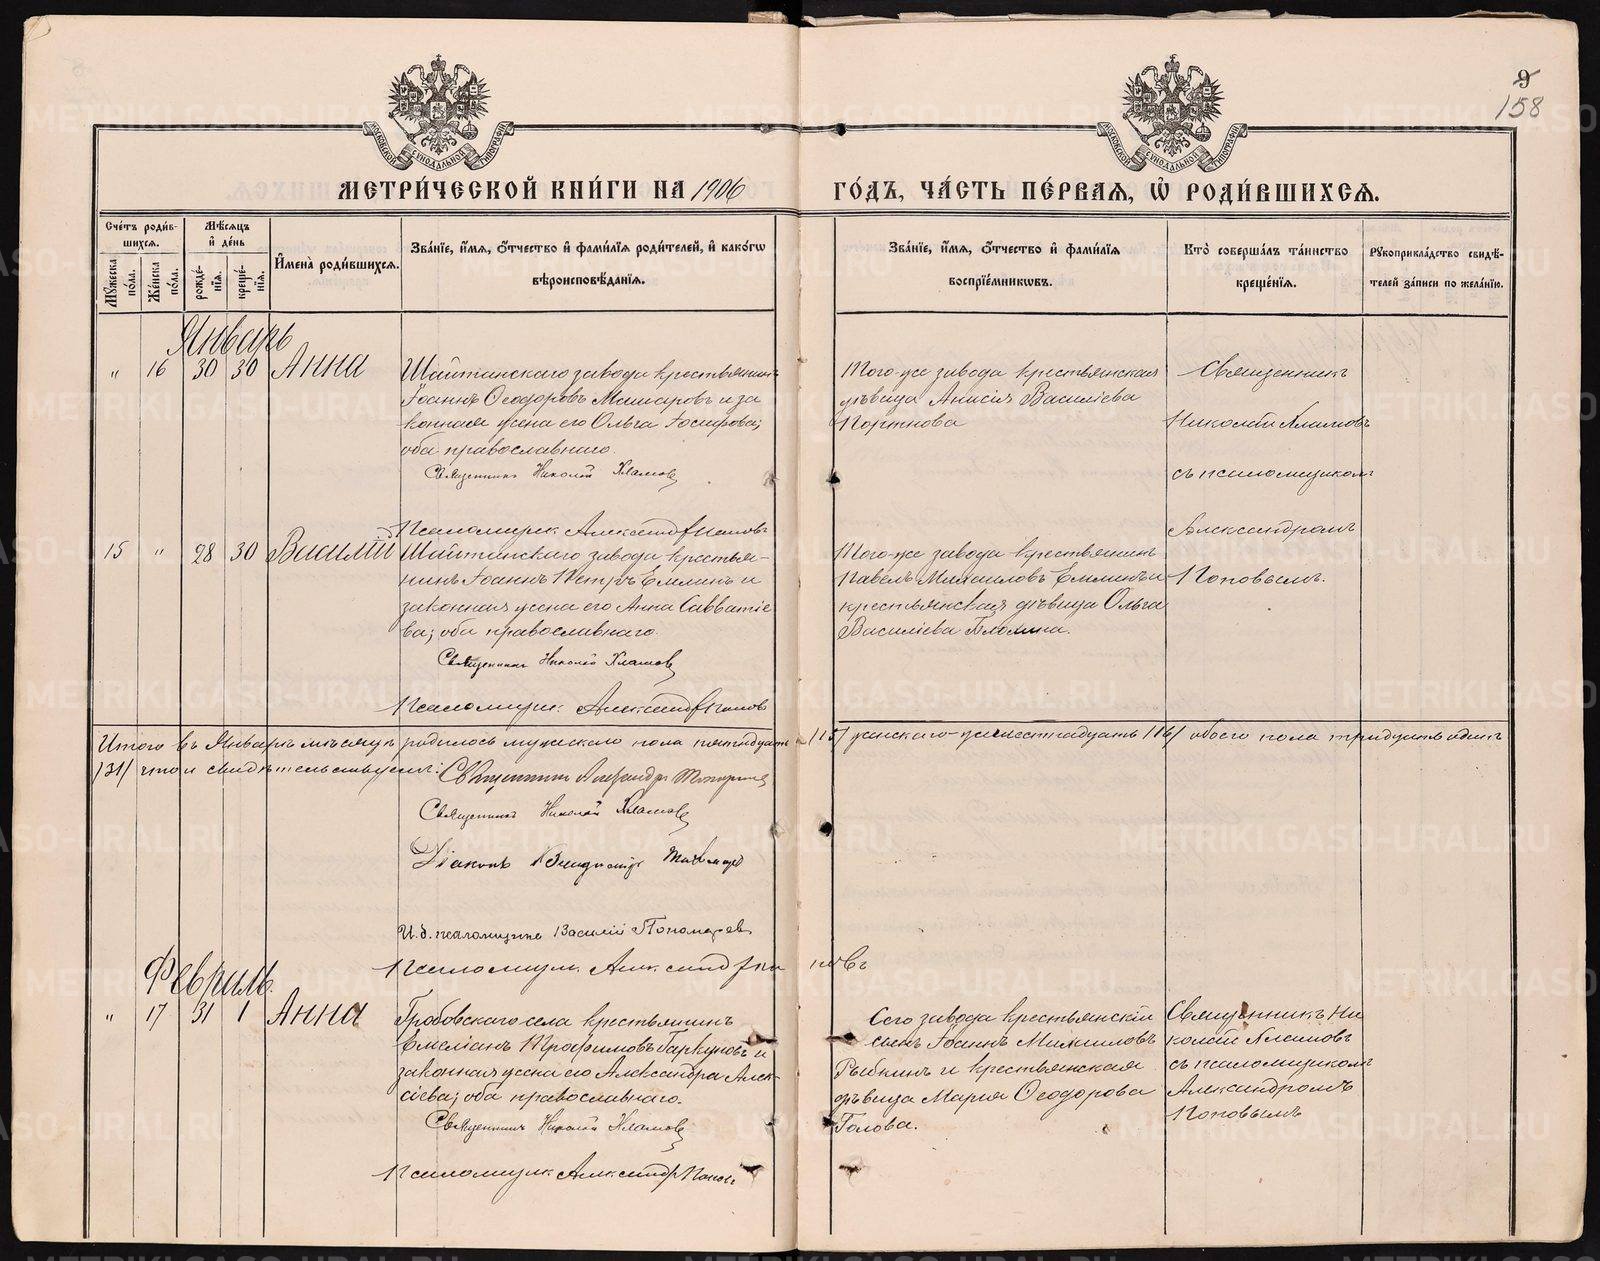 158
МЕТРИ́ЧЕСКОЙ КНИ́ГИ НА 1906 ГО́ДЪ, ЧА́СТЬ ПЕ́РВАЯ, Ѿ РОДИ́ВШИХСѦ.
Сче́тъ роди́в-
шихсѧ.
Мѣ́сѧцъ
и҆ де́нь
Мꙋ́жеска по́ла.
Же́нска по́ла.
рожде́-
нїѧ.
креще́-
нїѧ.
И҆мена̀ роди́вшихсѧ.
Зва́нїе, и҆́мѧ, ѻ҆́тчество и҆ фами́лїѧ роди́телей, и҆ како́гѡ
вѣроисповѣ́данїѧ.
Зва́нїе, и҆́мѧ, ѻ҆́тчество и҆ фами́лїѧ
воспрїе́мникѡвъ.
Кто̀ соверша́лъ та́инство
креще́нїѧ.
Рꙋкоприкла́дство свидѣ́-
телей за́писи по жела́нїю.
Январь
" 16 30 30 Анна
Шайтанскаго завода крестьянинъ
Іоаннъ Ѳеодоровъ и за
конная жена его Ольга Іосифова;
оба православнаго.
Священникъ Николай Хламовъ
Псаломщик Александр Поповъ
Того-же завода крестьянская
дѣвица Анисія Василіева
Портнова
Священникъ
Николай Хламовъ
съ псаломщиком
Александромъ
Поповымъ.
15 " 28 30 Василій
Шайтанскаго завода крестья-
нинъ Іоаннъ Петровъ Емлинъ и
законная жена его Анна Савватіе
ва; оба православнаго.
Священникъ Николай Хламовъ
Псаломщик Александр Поповъ
Того-же завода крестьянинъ
Павелъ Михаиловъ Емлинъ и
крестьянская дѣвица Ольга
Василіева
Итого въ Январѣ мѣсяцѣ родилось мужескаго пола пятнадцать /15/ женскаго-шестнадцать /16/ обоего пола тридцать одинъ
/31/ что и свидѣтельствуемъ: Священникъ Александръ
Священникъ Николай Хламовъ
Діаконъ
И. д. псаломщика Василій Пономарев
Псаломщик Александр Поповъ
Февраль
" 17 31 1 Анна
Гробовскаго села крестьянинъ
Емеліанъ Трофимовъ и
законная жена его Александра Алек-
сіева; оба православнаго.
Священникъ Николай Хламовъ
Псаломщик Александр Поповъ
Сего завода крестьянскій
сынъ Іоаннъ Михаиловъ
Рыбкинъ и крестьянская
дѣвица Марія Ѳеодорова
Голова.
Священникъ Ни
колай Хламовъ
съ псаломщиком
Александромъ
Поповымъ